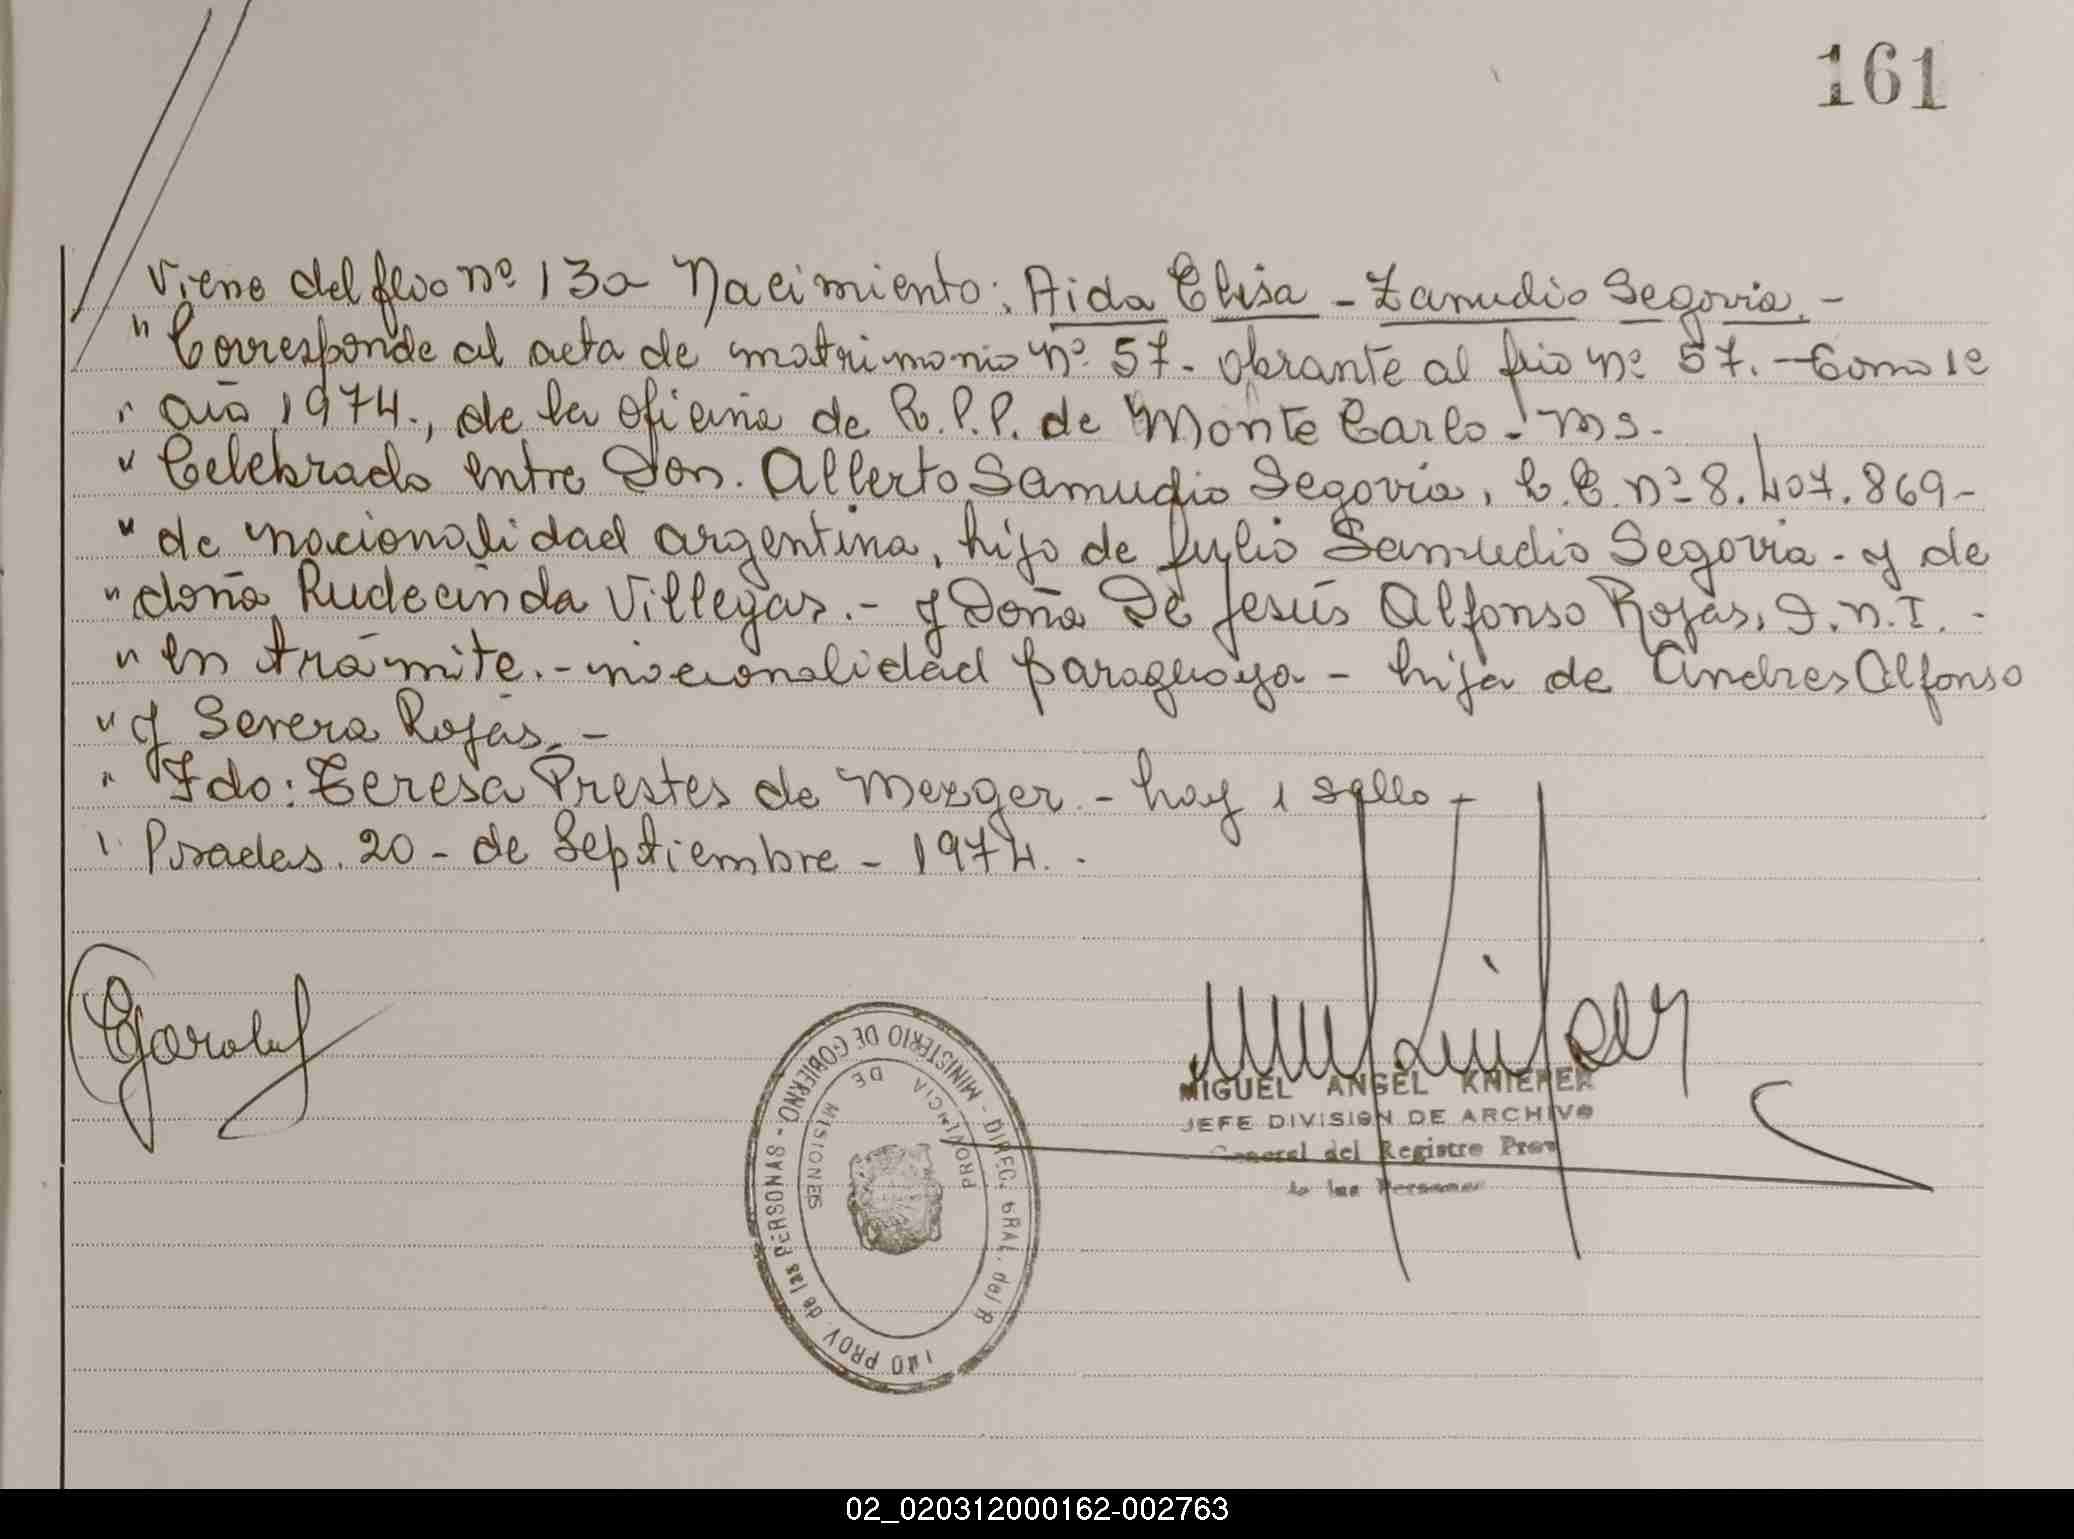 161
Viene del folio nº 130 Nacimiento: Aida Elisa - Zamudio Segovia. -
" Corresponde al acta de matrimonio nº 57 - obrante al folio nº 57. - Tomo 1º
" año 1974., de la oficina de R.P.P. de Monte Carlo - Ms -
" Celebrado entre Don. Alberto Samudio Segovia, C. C. nº 8.407.869 -
" de nacionalidad argentina, hijo de Julio Samudio Segovia - y de
" doña Rudecinda Villegas. - y Doña De Jesús Alfonso Rojas, I.N.I. -
" en trámite. - nacionalidad paraguaya - hija de Andres Alfonso
" y Severa Rojas. -
" Fdo: Teresa Prestes de Mezger. - hay 1 sello -
" Posadas. 20 - de Septiembre - 1974. -
MIGUEL ANGEL KNIEPER
JEFE DIVISION DE ARCHIVO
General del Registro Prov
de las Personas
MINISTERIO DE GOBIERNO - DIREC. GRAL. del R PROV de las PERSONAS -
PROVINCIA DE MISIONES
02_020312000162-002763